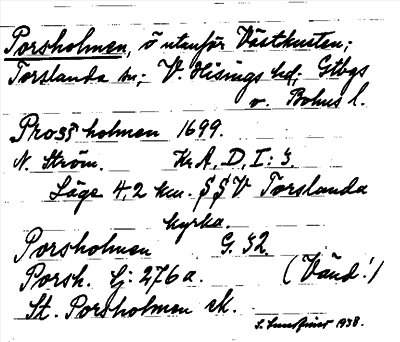 Porsholmen, ö utanför Västkusten;
Torslanda sn; V. Hisings hd; Gtbgs
o. Bohus l.
Prossholmen 1699.
N. Ström. Kr A, D, I: 3.
Läge 4,2 km. SSV Torslanda
kyrka.
Porsholmen G. 32
Porsh. Ej. 276a. (Vänd!)
St. Porsholmen sk.
1938.